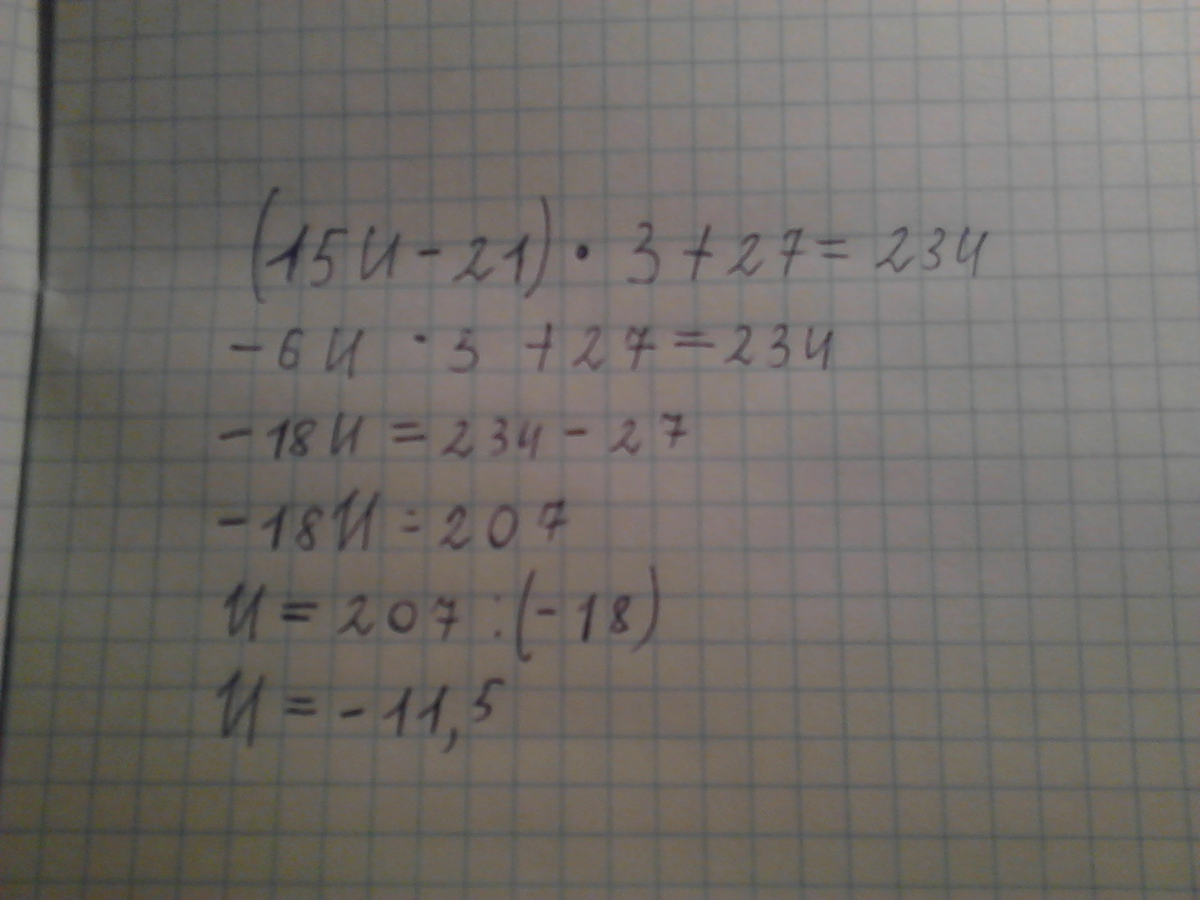 (15и-21)·3+27=234
-6и·3+27=234
-18и=234-27
-18и=207
и=207:(-18)
и=-11,5